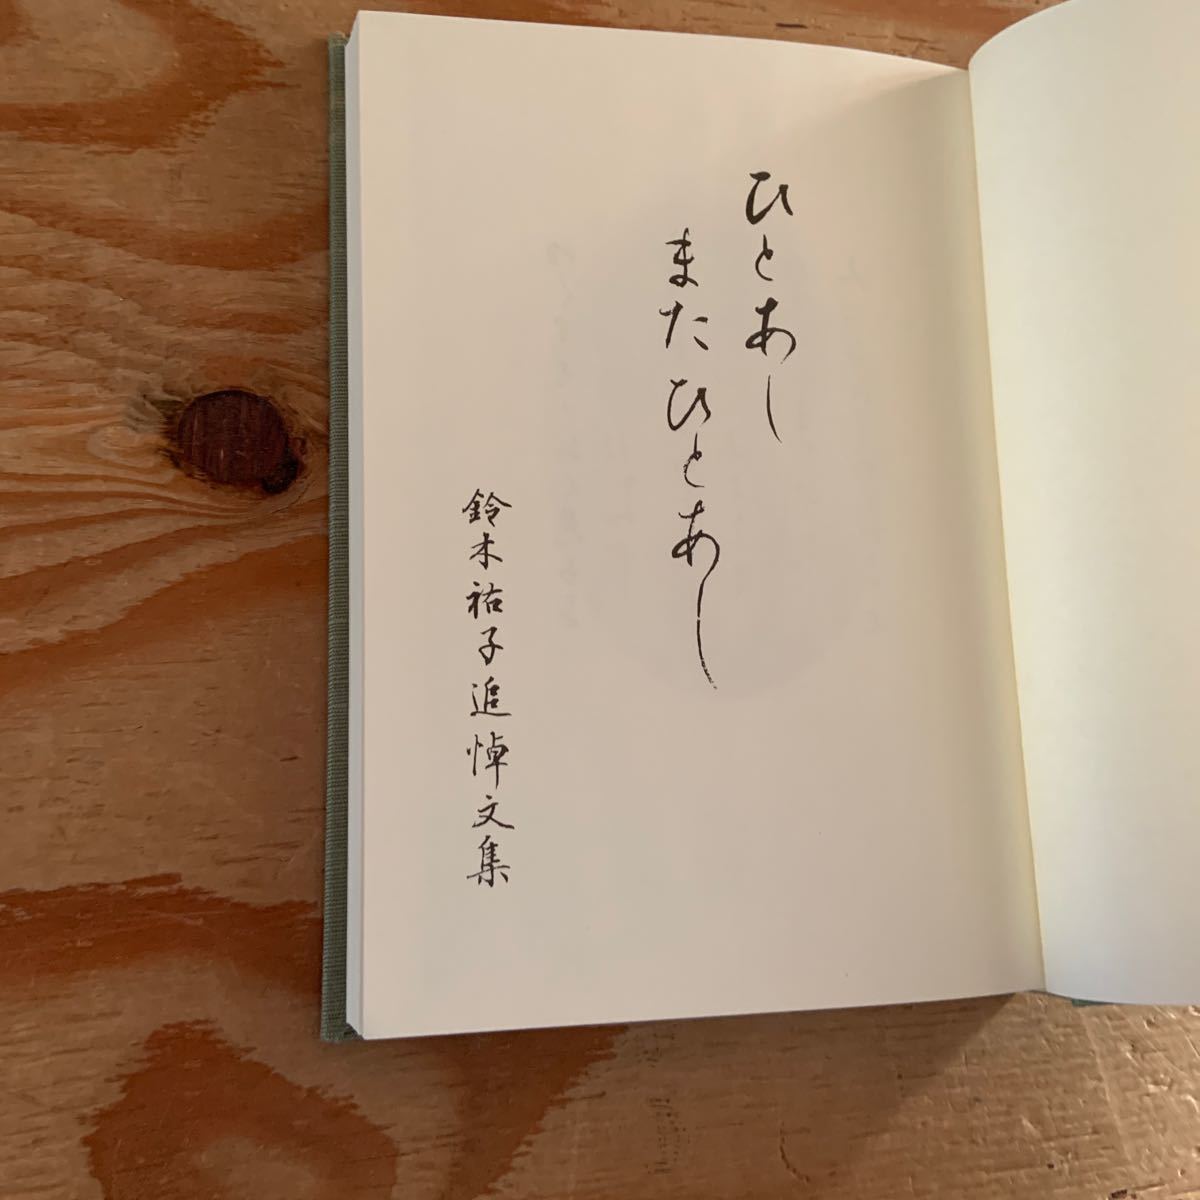 ひとあし
またひとあし
鈴木祐子追悼文集